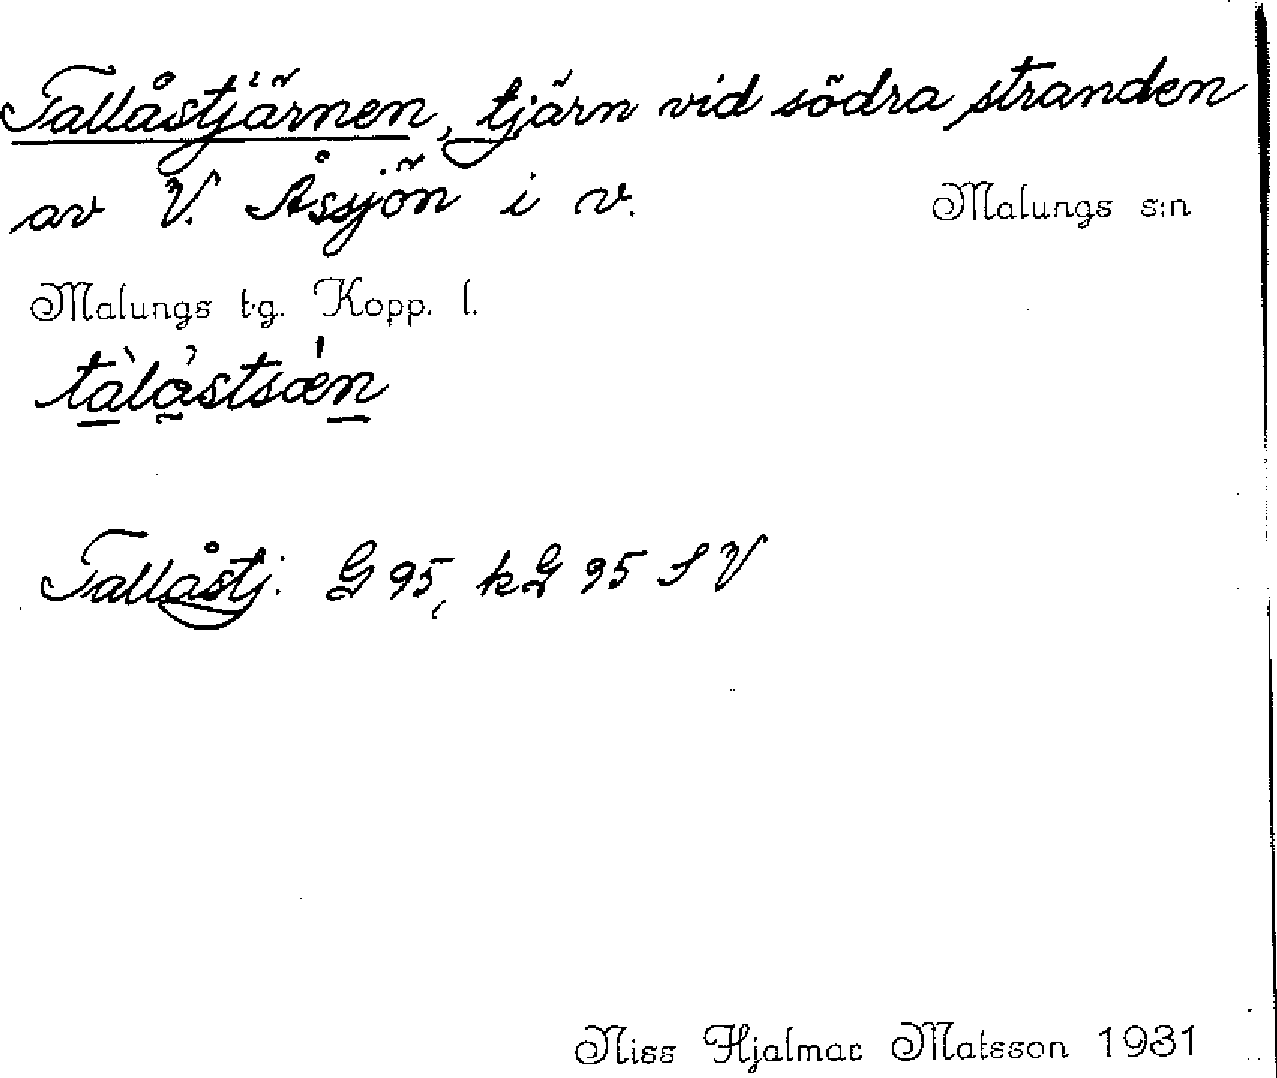 Tallåstjärnen, tjärn vid södra stranden
av V. Åssjön i v. Malungs s:n
Malungs tg. Kopp. l.
tàlåstsæ̀n
Tallåstj. G 95, kG 95 SV
Niss Hjalmar Matsson 1931